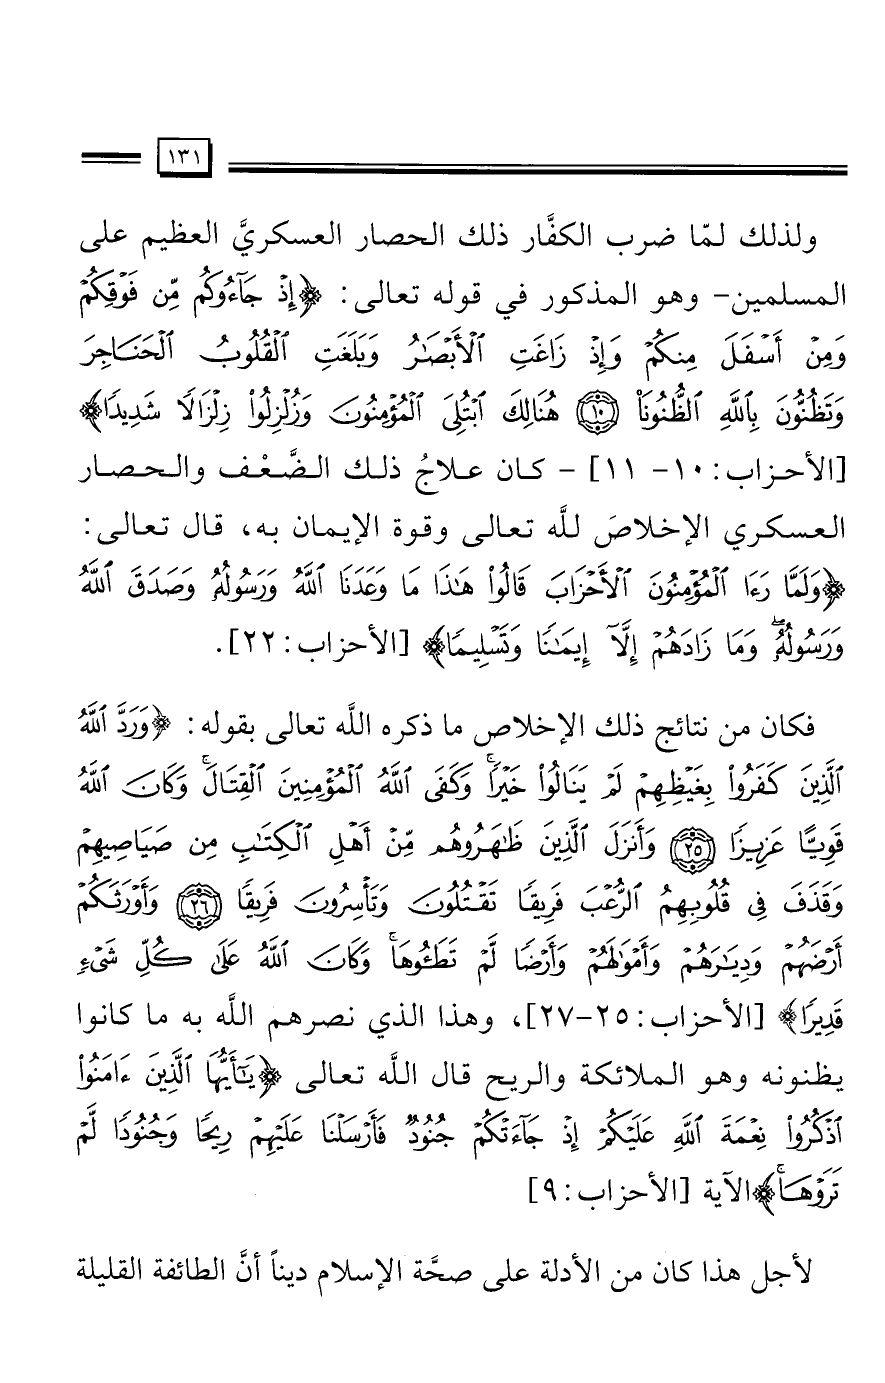 ١٣١
ولذلك لمّا ضرب الكفَّار ذلك الحصار العسكريَّ العظيم على
المسلمين- وهو المذكور في قوله تعالى: ﴿إِذْ جَآءُوكُم مِّن فَوْقِكُمْ
وَمِنْ أَسْفَلَ مِنكُمْ وَإِذْ زَاغَتِ ٱلْأَبْصَٰرُ وَبَلَغَتِ ٱلْقُلُوبُ ٱلْحَنَاجِرَ
وَتَظُنُّونَ بِٱللَّهِ ٱلظُّنُونَا۠ ⑩ هُنَالِكَ ٱبْتُلِىَ ٱلْمُؤْمِنُونَ وَزُلْزِلُوا۟ زِلْزَالًا شَدِيدًا﴾
[الأحزاب: ١٠- ١١] - كان علاجُ ذلك الضَّعْف والحصار
العسكري الإخلاصَ للَّه تعالى وقوة الإيمان به، قال تعالى:
﴿وَلَمَّا رَءَا ٱلْمُؤْمِنُونَ ٱلْأَحْزَابَ قَالُوا۟ هَٰذَا مَا وَعَدَنَا ٱللَّهُ وَرَسُولُهُۥ وَصَدَقَ ٱللَّهُ
وَرَسُولُهُۥ ۚ وَمَا زَادَهُمْ إِلَّآ إِيمَٰنًا وَتَسْلِيمًا﴾ [الأحزاب: ٢٢].
فكان من نتائج ذلك الإخلاص ما ذكره اللَّه تعالى بقوله: ﴿وَرَدَّ ٱللَّهُ
ٱلَّذِينَ كَفَرُوا۟ بِغَيْظِهِمْ لَمْ يَنَالُوا۟ خَيْرًا ۚ وَكَفَى ٱللَّهُ ٱلْمُؤْمِنِينَ ٱلْقِتَالَ ۚ وَكَانَ ٱللَّهُ
قَوِيًّا عَزِيزًا ٢٥ وَأَنزَلَ ٱلَّذِينَ ظَٰهَرُوهُم مِّنْ أَهْلِ ٱلْكِتَٰبِ مِن صَيَاصِيهِمْ
وَقَذَفَ فِى قُلُوبِهِمُ ٱلرُّعْبَ فَرِيقًا تَقْتُلُونَ وَتَأْسِرُونَ فَرِيقًا ٢٦ وَأَوْرَثَكُمْ
أَرْضَهُمْ وَدِيَٰرَهُمْ وَأَمْوَٰلَهُمْ وَأَرْضًا لَّمْ تَطَـُٔوهَا ۚ وَكَانَ ٱللَّهُ عَلَىٰ كُلِّ شَىْءٍ
قَدِيرًا﴾ [الأحزاب: ٢٥-٢٧]، وهذا الذي نصرهم اللَّه به ما كانوا
يظنونه وهو الملائكة والريح قال اللَّه تعالى ﴿يَٰٓأَيُّهَا ٱلَّذِينَ ءَامَنُوا۟
ٱذْكُرُوا۟ نِعْمَةَ ٱللَّهِ عَلَيْكُمْ إِذْ جَآءَتْكُمْ جُنُودٌ فَأَرْسَلْنَا عَلَيْهِمْ رِيحًا وَجُنُودًا لَّمْ
تَرَوْهَا ۚ﴾ الآية [الأحزاب: ٩]
لأجل هذا كان من الأدلة على صحَّة الإسلام ديناً أنَّ الطائفة القليلة